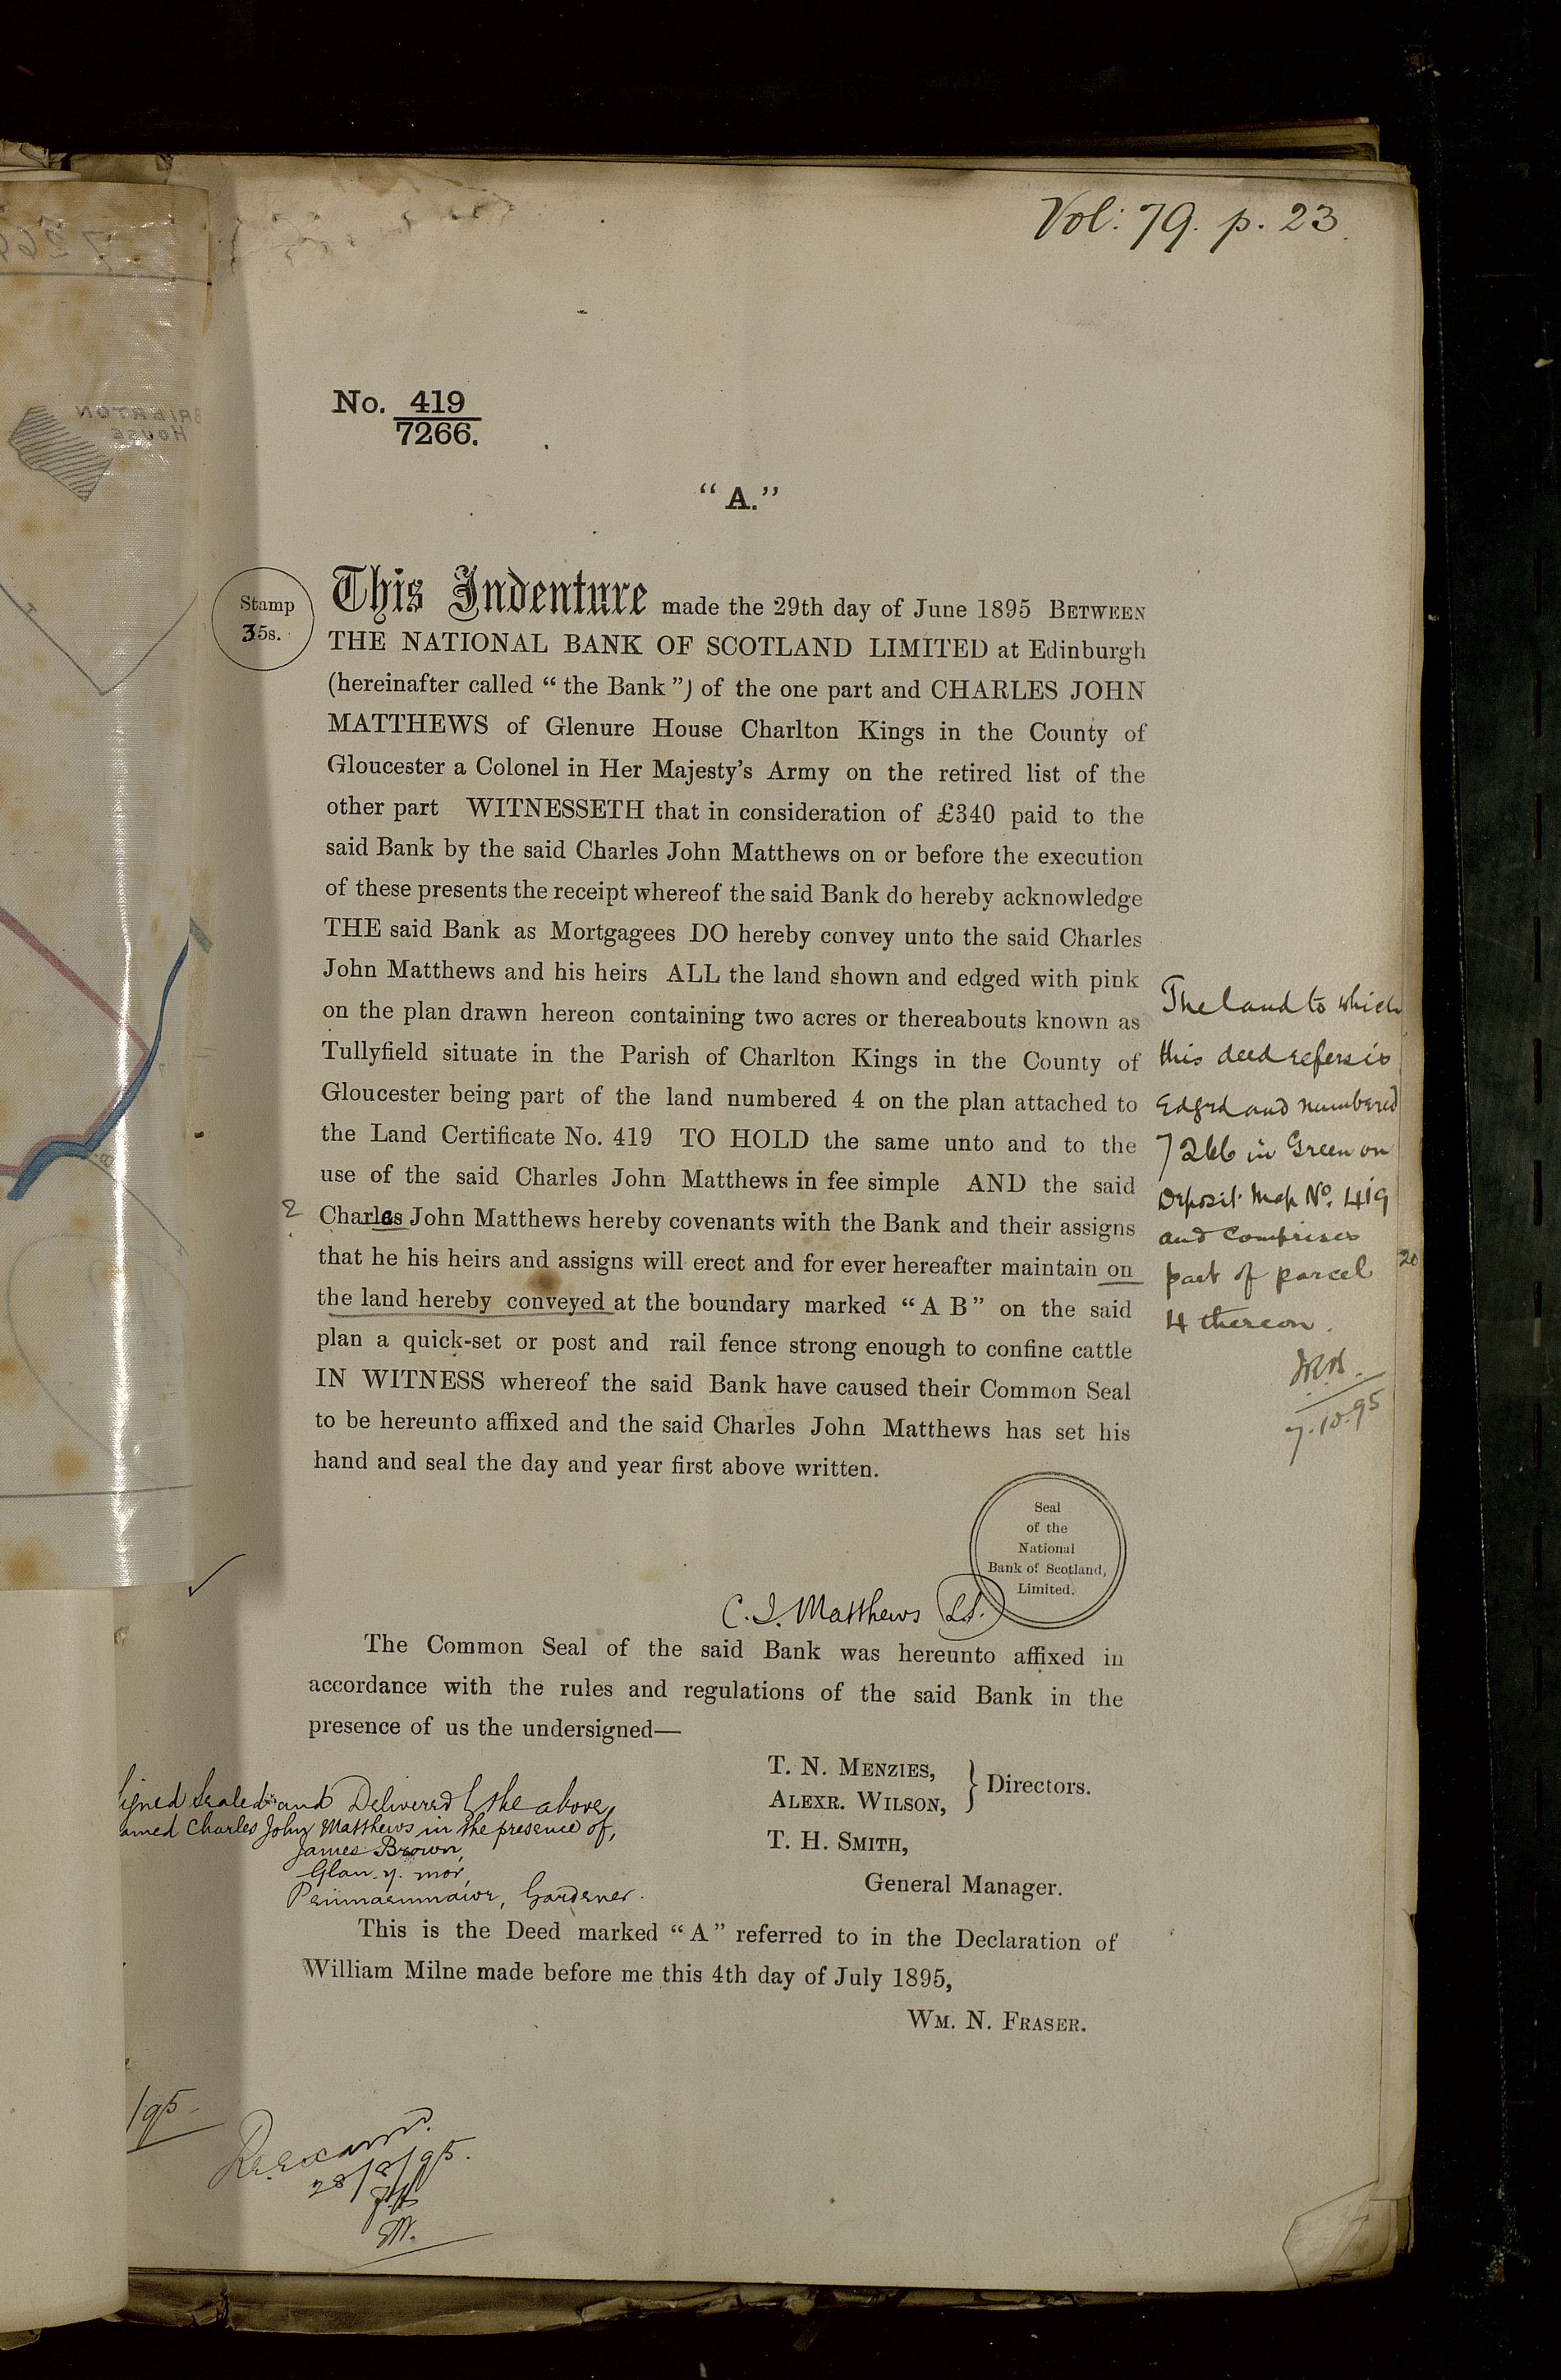 Vol: 79. p. 23.
No. 419
7266.
“A.”
Stamp
35s.
This Indenture made the 29th day of June 1895 BETWEEN
THE NATIONAL BANK OF SCOTLAND LIMITED at Edinburgh
(hereinafter called “the Bank”) of the one part and CHARLES JOHN
MATTHEWS of Glenure House Charlton Kings in the County of
Gloucester a Colonel in Her Majesty's Army on the retired list of the
other part WITNESSETH that in consideration of £340 paid to the
said Bank by the said Charles John Matthews on or before the execution
of these presents the receipt whereof the said Bank do hereby acknowledge
THE said Bank as Mortgagees DO hereby convey unto the said Charles
John Matthews and his heirs ALL the land shown and edged with pink
on the plan drawn hereon containing two acres or thereabouts known as
Tullyfield situate in the Parish of Charlton Kings in the County of
Gloucester being part of the land numbered 4 on the plan attached to
the Land Certificate No. 419 TO HOLD the same unto and to the
use of the said Charles John Matthews in fee simple AND the said
Charles John Matthews hereby covenants with the Bank and their assigns
that he his heirs and assigns will erect and for ever hereafter maintain on
the land hereby conveyed at the boundary marked “A B” on the said
plan a quick-set or post and rail fence strong enough to confine cattle
IN WITNESS whereof the said Bank have caused their Common Seal
to be hereunto affixed and the said Charles John Matthews has set his
hand and seal the day and year first above written.
The land to which
this deed refers is
Edged and numbered
7266 in Green on
Deposit Map No. 419
and comprises
part of parcel
4 thereon.
7.10.95
20
Seal
of the
National
Bank of Scotland,
Limited.
C. J. Matthews L.S.
The Common Seal of the said Bank was hereunto affixed in
accordance with the rules and regulations of the said Bank in the
presence of us the undersigned—
T. N. MENZIES,
ALEXR. WILSON,
} Directors.
T. H. SMITH,
General Manager.
igned Sealed and Delivered by the above
amed Charles John Matthews in the presence of,
James Brown,
Glan. y. mor,
Penmaenmawr, Gardener.
This is the Deed marked “A” referred to in the Declaration of
William Milne made before me this 4th day of July 1895,
WM. N. FRASER.
/95.
Reexamd.
28/8/95.
BRIERTON
HOUSE